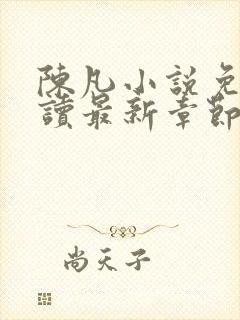 陳凡小説免
讀最新章節
尚天子